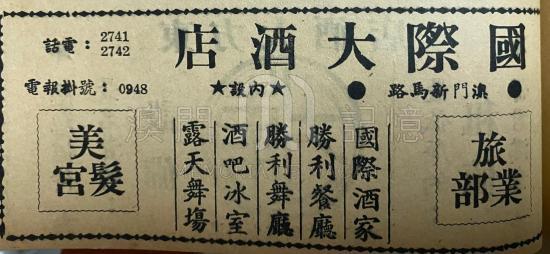 國際大酒店
●澳門新馬路●
★內設★
話電：2741
2742
電報掛號：0948
旅業部
國際酒家
勝利餐廳
勝利舞廳
酒吧冰室
露天舞場
美髮宮
澳門記憶